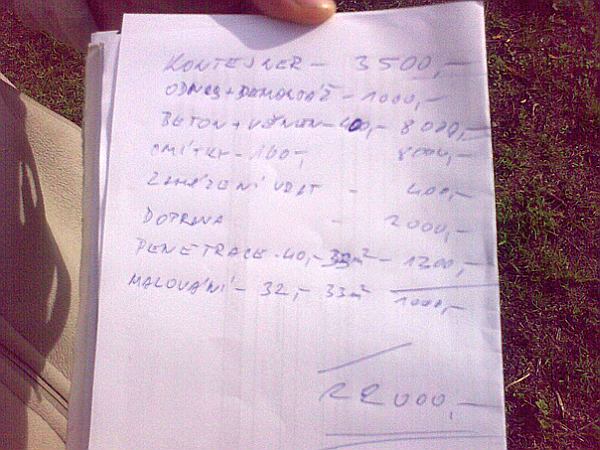 KONTEJNER - 3500,-
ODNOS + DEMONTÁŽ - 1000,-
BETON + 400,- 8000,-
OMÍTKY - 160,- 8000,-
ZAHÁZENÍ - 400,-
DOPRAVA - 2000,-
PENETRACE - 40,- 33m² - 1300,-
MALOVÁNÍ - 32,- 33m² 1000,-
22000,-